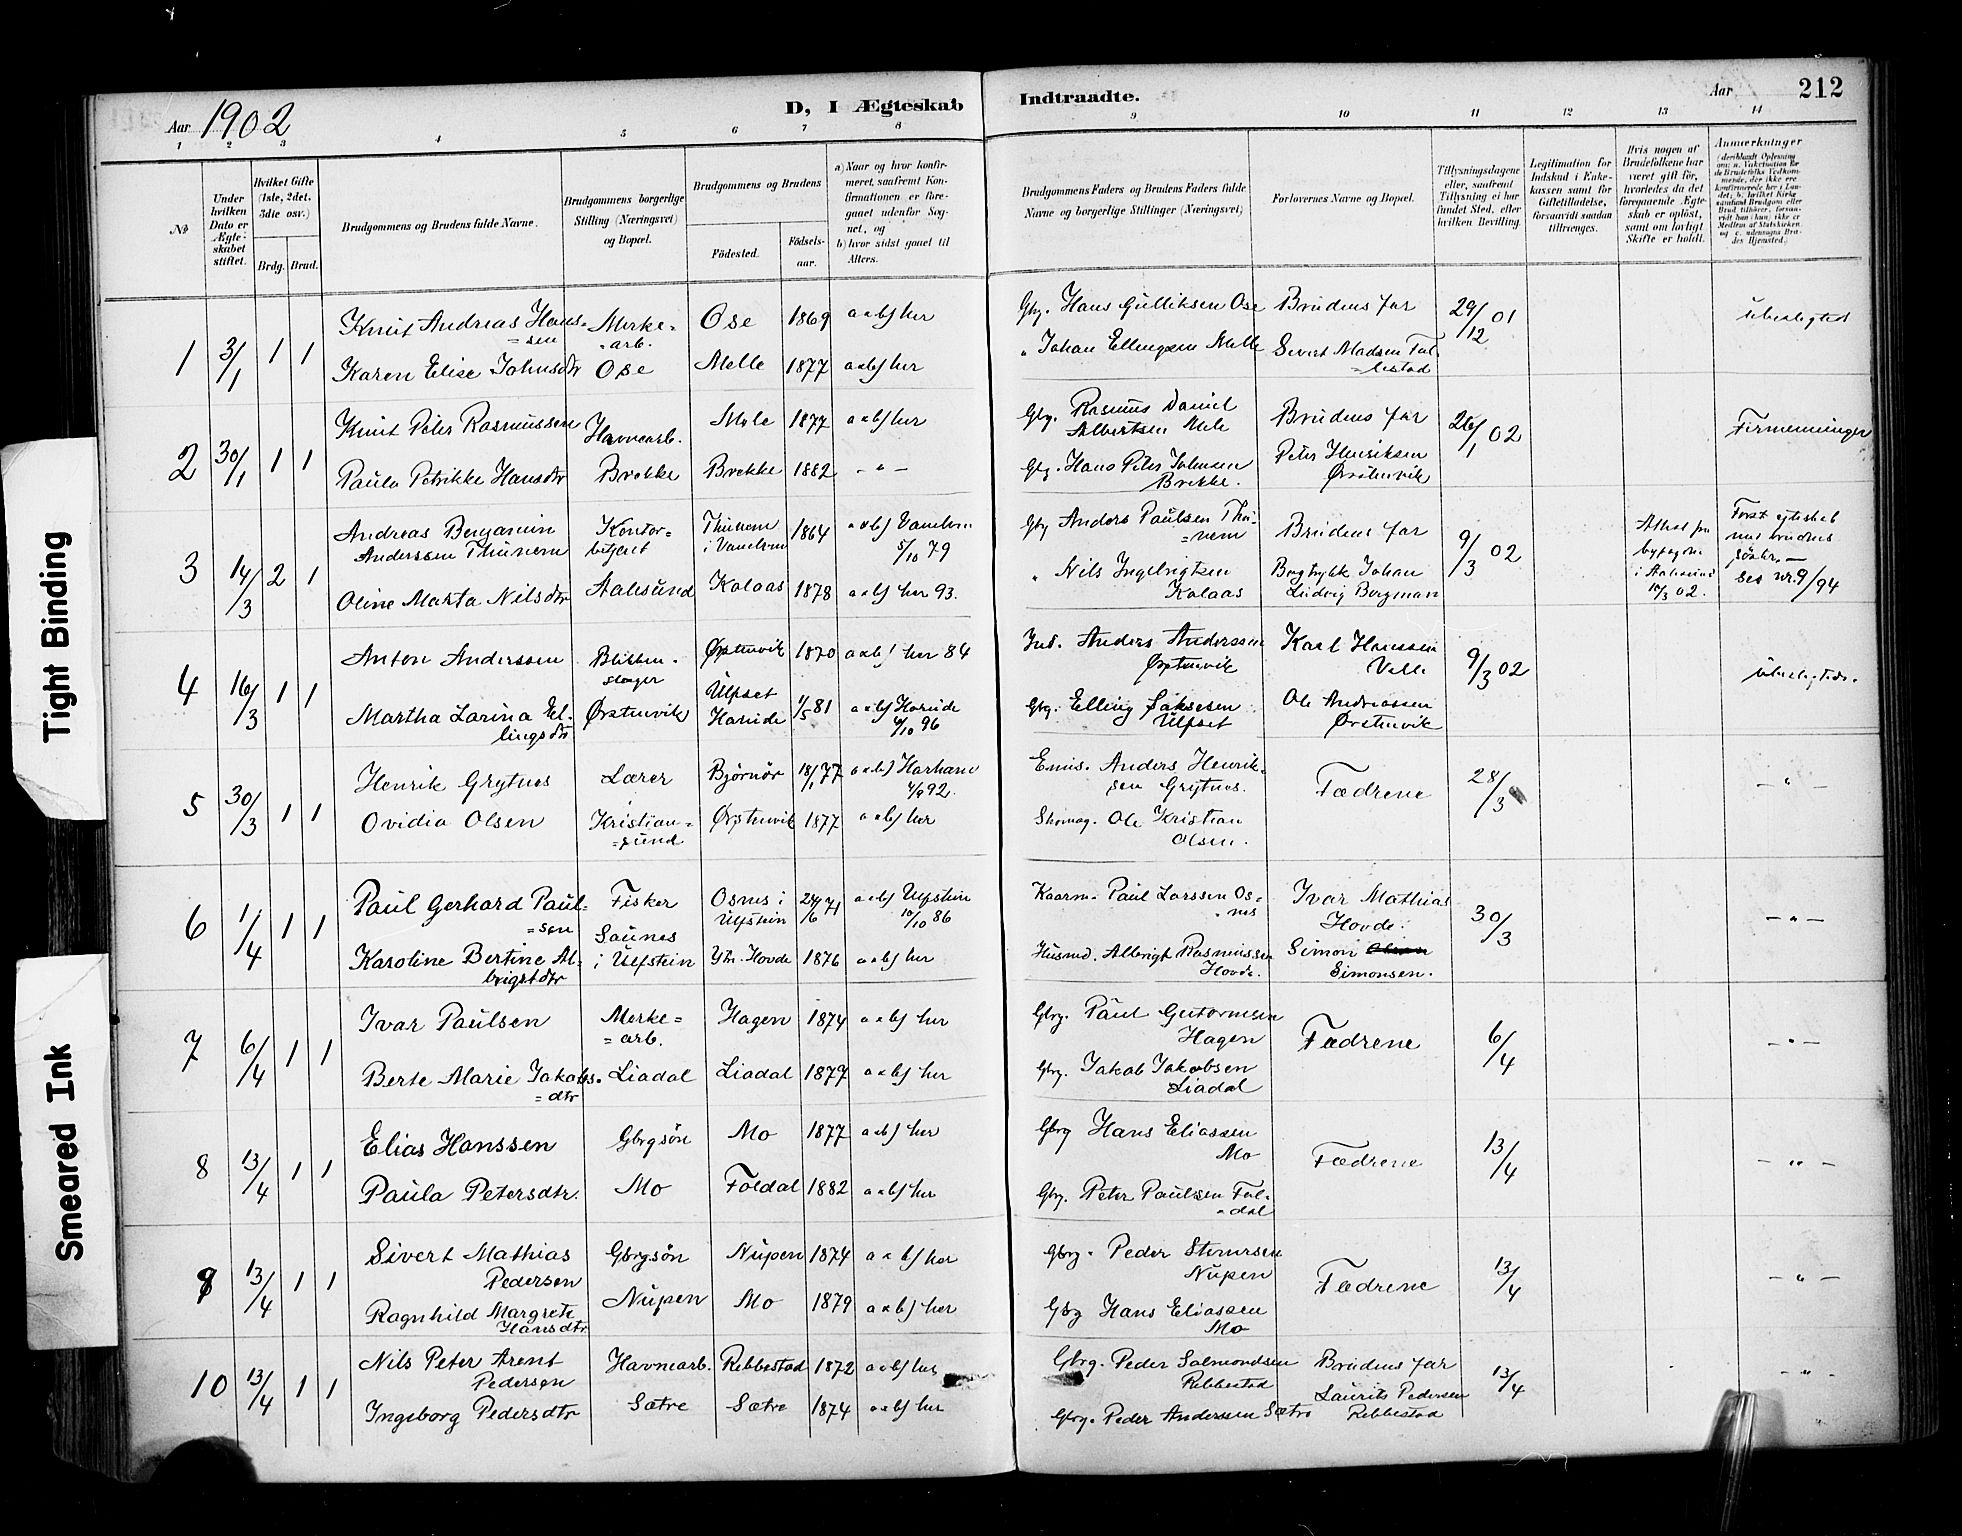 Aar 1902
D, I Ægteskab Indtraadte.
Aar 212
1 2 3 4 5 6 7 8 9 10 11 12 13 14
No
Under hvilken Dato er Ægteskabet stiftet.
Hvilket Gifte (1ste, 2det, 3die osv.)
Brdg. Brud.
Brudgommens og Brudens fulde Navne.
Brudgommens borgerlige Stilling (Næringsvei) og Bopæl.
Brudgommens og Brudens
Födested.
Födselsaar.
a) Naar og hvor konfirmeret, saafremt Konfirmationen er foregaaet udenfor Sognet, og
b) hvor sidst gaaet til Alters.
Brudgommens Faders og Brudens Faders fulde Navne og borgerlige Stillinger (Næringsvei)
Forlovernes Navne og Bopæl.
Tillysningsdagene eller, saafremt Tillysning ei har fundet Sted, efter hvilken Bevilling.
Legitimation for Indskud i Enkekassen samt for Giftetilladelse, forsaavidt saadan tiltrænges.
Hvis nogen af Brudefolkene har været gift för, hvorledes da det foregaaende Ægteskab er oplöst, samt om lovligt Skifte er holdt.
Anmærkninger
1 3/1 1 1
Knut Andreas Hans=
=sen
Karen Elise Johnsdtr
Merke=
=arb.
Ose
Ose 1869 a&b) her
Melle 1877 a&b) her
Gbg. Hans Gulliksen Ose
" Johan Ellingsen Melle
Brudens far
Sivert Madsen
29/12 01
ubeslegted
2 30/1 1 1
Knut Peter Rasmussen
Paula Petrikke Hansdtr
Havnearb.
Brekke
Mele 1877 a&b) her
Brekke 1882 - " -
Gbg. Rasmus Daniel
Albertsen Mele
Gbg. Hans Peter Johnsen
Brekke.
Brudens far
Peter Henriksen
Ørstenvik
26/1 02
Firmenninger
3 14/3 2 1
Andreas Benjamin
Anderssen Thunem
Oline Marta Nilsdtr
Kontor=
betjent
Aalesund
Thunem
i Vanelven
1864 a&b) Vanelven
5/10 79
Kolaas 1878 a&b) her 93.
Gbg Anders Paulsen Thu=
=nem
" Nils Ingebrigtsen
Kolaas
Brudens far
Bogtrykk Johan
Ludvig Bergman
9/3 02
Attest fra
byfogden
i Aalesund
10/3 02.
Först egteskab
med brudens
söster. —
Ses nr. 9/94
4 16/3 1 1
Anton Anderssen
Martha Larina El=
lingsdtr
Blikken=
slager
Ørstenvik
Ørstenvik 1870 a&b) her 84
Ulfset
Hareide
1/5 81 a&b) Hareide
4/10 96
Ind. Anders Anderssen
Ørstenvik
Gbg. Elling Saksesen
Ulfset
Karl Hanssen
Velle
Ole Andreassen
Ørstenvik
9/3 02
ubeslegtede.
5 30/3 1 1
Henrik Grytnes
Ovidia Olsen
Lærer
Kristian=
=sund
Bjørnör 18/1 77 a&b) Harham
4/9 92.
Ørstenvik 1877 a&b) her
Emis. Anders Henrik=
sen Grytnes.
Skomag. Ole Kristian
Olsen.
Fædrene
28/3
- " -
6 1/4 1 1
Paul Gerhard Paul=
=sen
Karoline Bertine Al=
brigtsdtr
Fisker
Saunes
i Ulfstein
Osnes i
Ulfstein
24/6 71 a&b) Ulfstein
10/10 86
Ytr. Hovde 1876 a&b) her
Kaarm. Paul Larssen Os=
=nes
Husmd. Albrigt Rasmussen
Hovde.
Ivar Mathias
Hovde.
Simon
Simonsen.
30/3
- " -
7 6/4 1 1
Ivar Paulsen
Berte Marie Jakobs=
=dtr
Merke=
=arb.
Liadal
Hagen 1874 a&b) her
Liadal 1879 a&b) her
Gbg. Paul Guttormsen
Hagen
Gbg. Jakob Jakobsen
Liadal
Fædrene
6/4
- " -
8 13/4 1 1
Elias Hanssen
Paula Petersdtr.
Gbrgsön
Mo
Mo 1877 a&b) her
Foldal 1882 a&b) her
Gbrg Hans Eliassen
Mo
Gbg. Peter Paulssen Fol=
=dal
Fædrene
13/4
- " -
9 13/4 1 1
Sivert Mathias
Pedersen
Ragnhild Margrete
Hansdtr
Gbrgsön
Nupen
Nupen 1874 a&b) her
Mo 1879 a&b) her
Gbrg. Peder Steinrsen
Nupen
Gbg Hans Eliassen
Mo
Fædrene
13/4
- " -
10 13/4 1 1
Nils Peter Arent
Pedersen
Ingeborg Pedersdtr
Havnearb.
Sætre
Rebbestad 1872 a&b) her
Sætre 1874 a&b) her
Gbrg. Peder Salmondsen
Rebbestad
Gbrg. Peder Anderssen Sætre
Brudens far
Laurits Pedersen
Rebbestad
13/4
- " -
Tight Binding
Smeared Ink